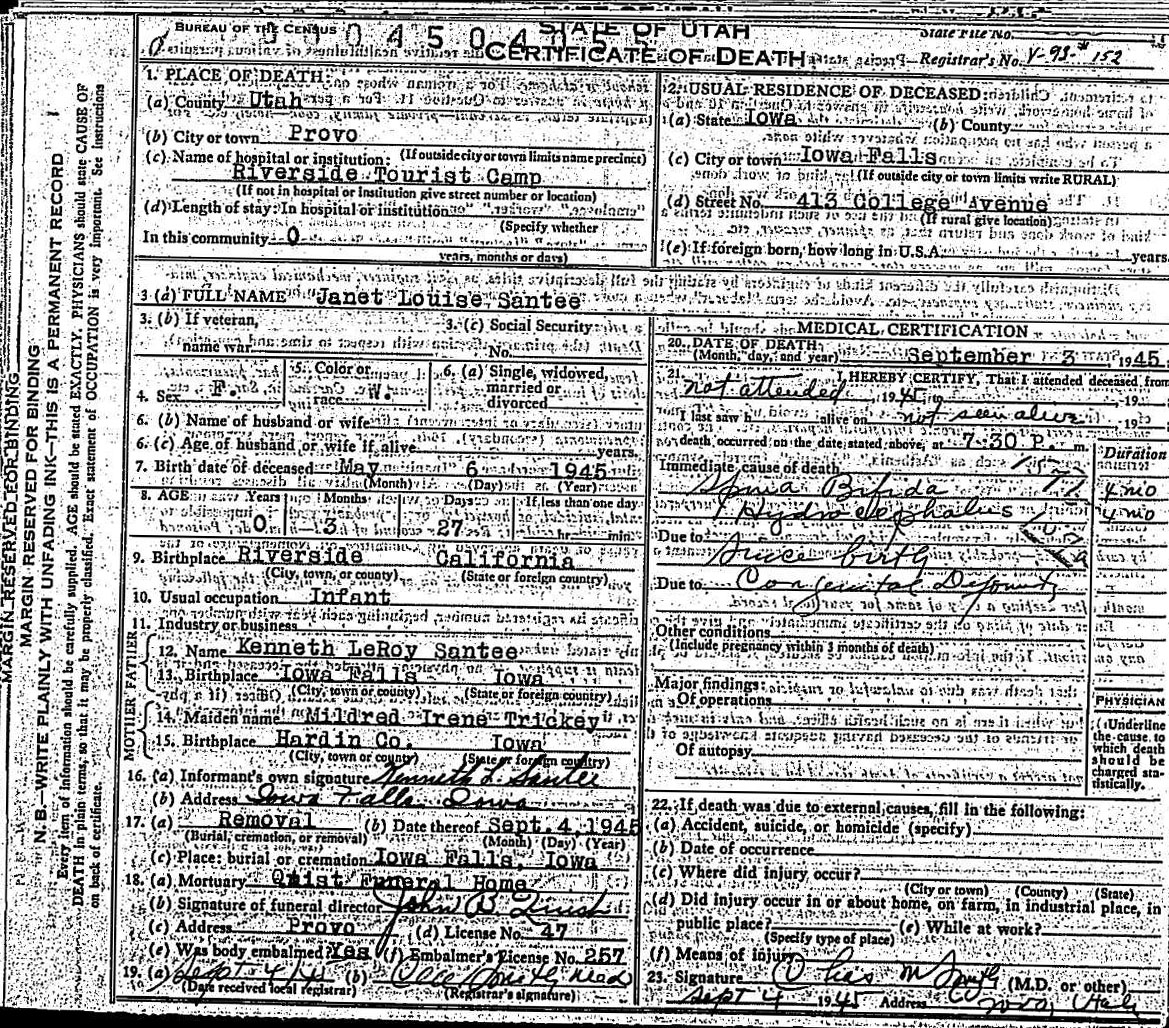 BUREAU OF THE CENSUS
STATE OF UTAH
State File No.
CERTIFICATE OF DEATH
Registrar's No. V-93- 152
MARGIN RESERVED FOR BINDING
MARGIN RESERVED FOR BINDING
N. B.—WRITE PLAINLY WITH UNFADING INK—THIS IS A PERMANENT RECORD
Every item of information should be carefully supplied. AGE should be stated EXACTLY. PHYSICIANS should state CAUSE OF
DEATH in plain terms, so that it may be properly classified. Exact statement of OCCUPATION is very important. See Instructions
on back of certificate.
1. PLACE OF DEATH:
(a) County Utah
(b) City or town Provo
(c) Name of hospital or institution: (If outside city or town limits name precinct)
Riverside Tourist Camp
(If not in hospital or institution give street number or location)
(d) Length of stay: In hospital or institution
(Specify whether
In this community 0
years, months or days)
2. USUAL RESIDENCE OF DECEASED:
(a) State Iowa (b) County
(c) City or town Iowa Falls
(If outside city or town limits write RURAL)
(d) Street No. 413 College Avenue
(If rural give location)
(e) If foreign born, how long in U.S.A. years.
3 (a) FULL NAME Janet Louise Santee
3. (b) If veteran,
name war
3. (c) Social Security
No.
4. Sex F.
5. Color or
race W.
6. (a) Single, widowed,
married or
divorced
6. (b) Name of husband or wife
6. (c) Age of husband or wife if alive years.
7. Birth date of deceased May 6 1945
(Month) (Day) (Year)
8. AGE Years Months Days If less than one day
0 3 27 hr. min.
9. Birthplace Riverside California
(City, town, or county) (State or foreign country)
10. Usual occupation Infant
11. Industry or business
FATHER
12. Name Kenneth LeRoy Santee
13. Birthplace Iowa Falls Iowa
(City, town or county) (State or foreign country)
MOTHER
14. Maiden name Mildred Irene Trickey
15. Birthplace Hardin Co. Iowa
(City, town or county) (State or foreign country)
16. (a) Informant's own signature Kenneth L. Santee
(b) Address Iowa Falls Iowa
17. (a) Removal (b) Date thereof Sept. 4, 1945
(Burial, cremation, or removal) (Month) (Day) (Year)
(c) Place: burial or cremation Iowa Falls, Iowa
18. (a) Mortuary Quist Funeral Home
(b) Signature of funeral director John B
(c) Address Provo (d) License No. 47
(e) Was body embalmed? Yes (f) Embalmer's License No. 257
19. (a) Sept 4 (b)
(Date received local registrar) (Registrar's signature)
MEDICAL CERTIFICATION
20. DATE OF DEATH:
(Month, day, and year) September 3 1945.
21. I HEREBY CERTIFY, That I attended deceased from
not attended 1945, to 19
I last saw h alive on not seen alive 19
death occurred on the date stated above, at 7:30 P. m.
Duration
Immediate cause of death
Spina Bifida 4 mo
Hydrocephalus 4 mo
Due to Since birth
Due to Congenital Deformity
Other conditions
(Include pregnancy within 3 months of death)
Major findings:
Of operations
Of autopsy
PHYSICIAN
(Underline
the cause to
which death
should be
charged sta-
tistically.
22. If death was due to external causes, fill in the following:
(a) Accident, suicide, or homicide (specify)
(b) Date of occurrence
(c) Where did injury occur?
(City or town) (County) (State)
(d) Did injury occur in or about home, on farm, in industrial place, in
public place? (e) While at work?
(Specify type of place)
(f) Means of injury
23. Signature M Smith (M.D. or other)
Sept 4 1945 Address Provo, Utah